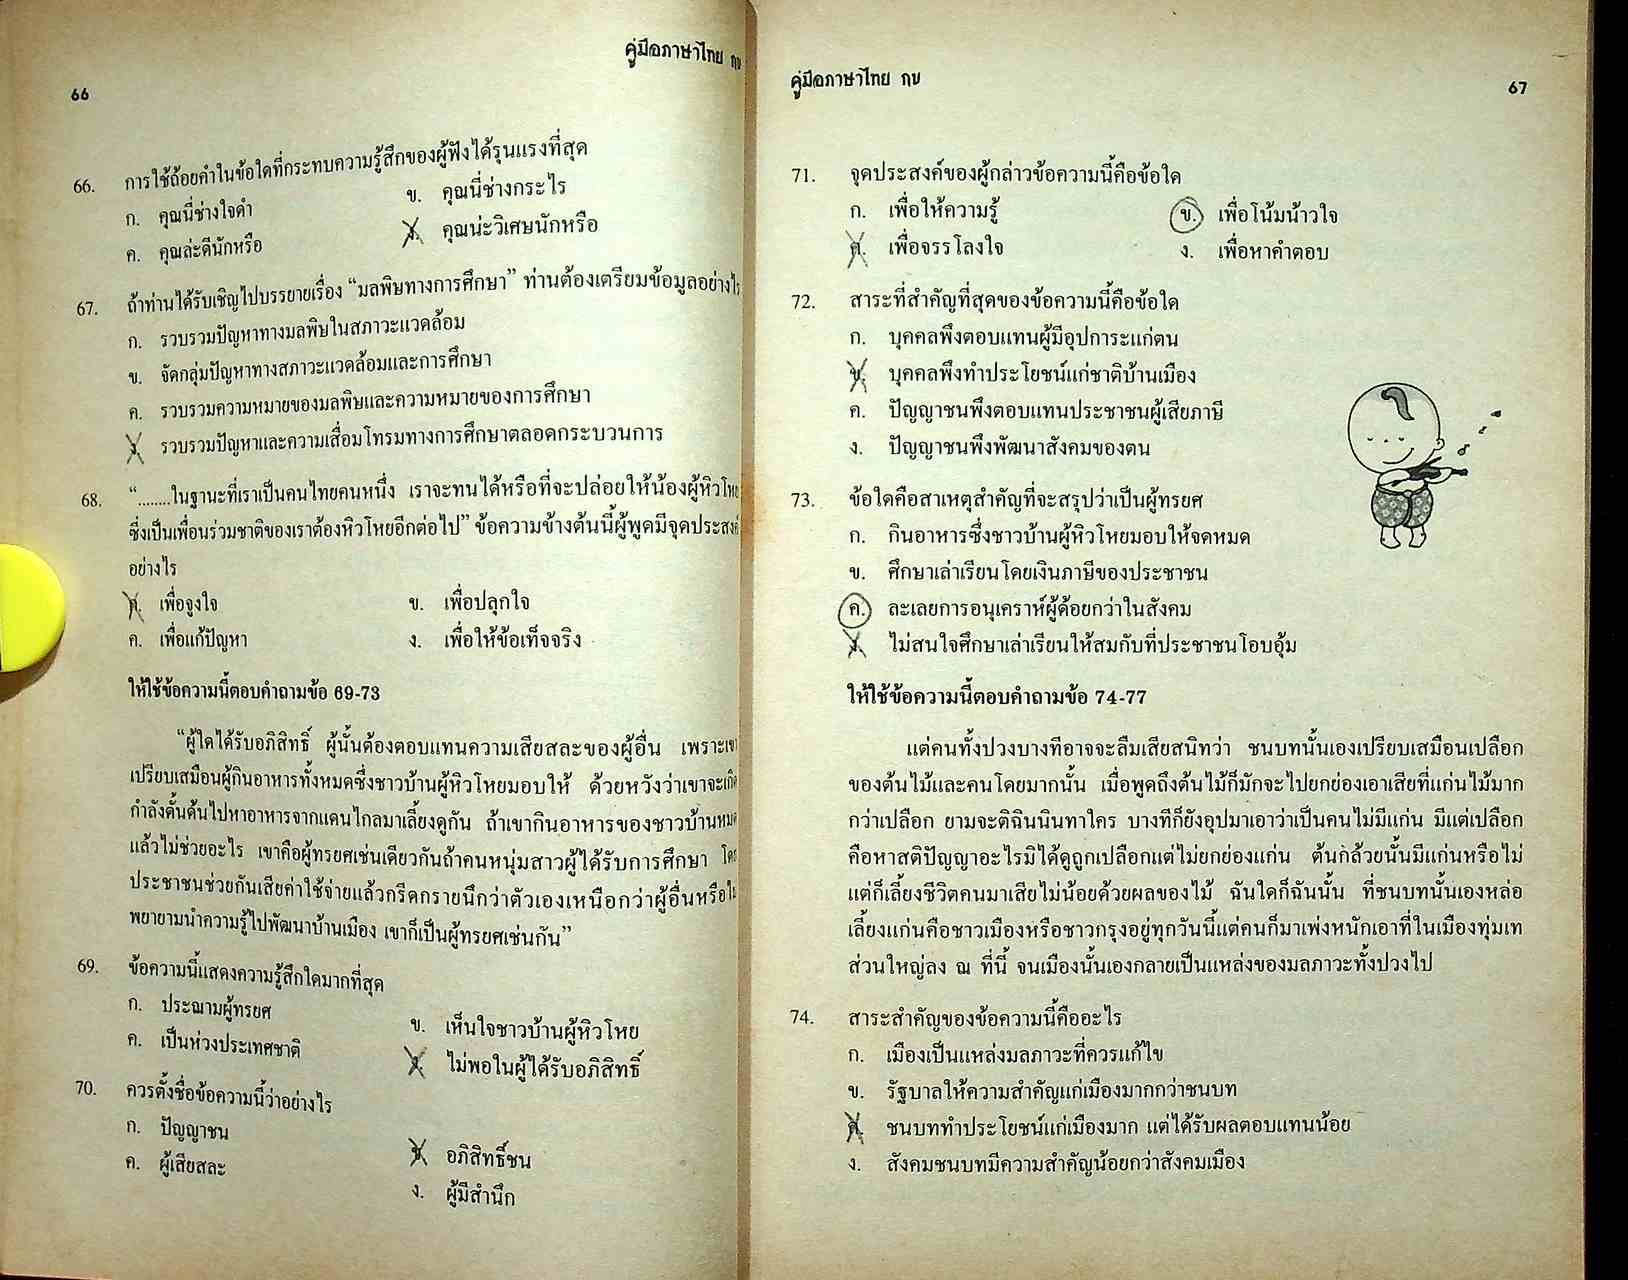 66
คู่มือภาษาไทย กข
66. การใช้ถ้อยคำในข้อใดที่กระทบความรู้สึกของผู้ฟังได้รุนแรงที่สุด
ก. คุณนี่ช่างใจดำ ข. คุณนี่ช่างกระไร
ค. คุณล่ะดีนักหรือ ง. คุณน่ะวิเศษนักหรือ
67. ถ้าท่านได้รับเชิญไปบรรยายเรื่อง “มลพิษทางการศึกษา” ท่านต้องเตรียมข้อมูลอย่างไร
ก. รวบรวมปัญหาทางมลพิษในสภาวะแวดล้อม
ข. จัดกลุ่มปัญหาทางสภาวะแวดล้อมและการศึกษา
ค. รวบรวมความหมายของมลพิษและความหมายของการศึกษา
ง. รวบรวมปัญหาและความเสื่อมโทรมทางการศึกษาตลอดกระบวนการ
68. “........ในฐานะที่เราเป็นคนไทยคนหนึ่ง เราจะทนได้หรือที่จะปล่อยให้น้องผู้หิวโหย
ซึ่งเป็นเพื่อนร่วมชาติของเราต้องหิวโหยอีกต่อไป” ข้อความข้างต้นนี้ผู้พูดมีจุดประสงค์
อย่างไร
ก. เพื่อจูงใจ ข. เพื่อปลุกใจ
ค. เพื่อแก้ปัญหา ง. เพื่อให้ข้อเท็จจริง
ให้ใช้ข้อความนี้ตอบคำถามข้อ 69-73
“ผู้ใดได้รับอภิสิทธิ์ ผู้นั้นต้องตอบแทนความเสียสละของผู้อื่น เพราะเขา
เปรียบเสมือนผู้กินอาหารทั้งหมดซึ่งชาวบ้านผู้หิวโหยมอบให้ ด้วยหวังว่าเขาจะเกิด
กำลังดั้นด้นไปหาอาหารจากแดนไกลมาเลี้ยงดูกัน ถ้าเขากินอาหารของชาวบ้านหมด
แล้วไม่ช่วยอะไร เขาคือผู้ทรยศเช่นเดียวกันถ้าคนหนุ่มสาวผู้ได้รับการศึกษา โดย
ประชาชนช่วยกันเสียค่าใช้จ่ายแล้วกรีดกรายนึกว่าตัวเองเหนือกว่าผู้อื่นหรือไม่
พยายามนำความรู้ไปพัฒนาบ้านเมือง เขาก็เป็นผู้ทรยศเช่นกัน”
69. ข้อความนี้แสดงความรู้สึกใดมากที่สุด
ก. ประฌามผู้ทรยศ ข. เห็นใจชาวบ้านผู้หิวโหย
ค. เป็นห่วงประเทศชาติ ง. ไม่พอใจผู้ได้รับอภิสิทธิ์
70. ควรตั้งชื่อข้อความนี้ว่าอย่างไร
ก. ปัญญาชน ข. อภิสิทธิ์ชน
ค. ผู้เสียสละ ง. ผู้มีสำนึก
คู่มือภาษาไทย กข
67
71. จุดประสงค์ของผู้กล่าวข้อความนี้คือข้อใด
ก. เพื่อให้ความรู้ ข. เพื่อโน้มน้าวใจ
ค. เพื่อจรรโลงใจ ง. เพื่อหาคำตอบ
72. สาระที่สำคัญที่สุดของข้อความนี้คือข้อใด
ก. บุคคลพึงตอบแทนผู้มีอุปการะแก่ตน
ข. บุคคลพึงทำประโยชน์แก่ชาติบ้านเมือง
ค. ปัญญาชนพึงตอบแทนประชาชนผู้เสียภาษี
ง. ปัญญาชนพึงพัฒนาสังคมของตน
73. ข้อใดคือสาเหตุสำคัญที่จะสรุปว่าเป็นผู้ทรยศ
ก. กินอาหารซึ่งชาวบ้านผู้หิวโหยมอบให้จดหมด
ข. ศึกษาเล่าเรียนโดยเงินภาษีของประชาชน
ค. ละเลยการอนุเคราห์ผู้ด้อยกว่าในสังคม
ง. ไม่สนใจศึกษาเล่าเรียนให้สมกับที่ประชาชนโอบอุ้ม
ให้ใช้ข้อความนี้ตอบคำถามข้อ 74-77
แต่คนทั้งปวงบางทีอาจจะลืมเสียสนิทว่า ชนบทนั้นเองเปรียบเสมือนเปลือก
ของต้นไม้และคนโดยมากนั้น เมื่อพูดถึงต้นไม้ก็มักจะไปยกย่องเอาเสียที่แก่นไม้มาก
กว่าเปลือก ยามจะติฉินนินทาใคร บางทีก็ยังอุปมาเอาว่าเป็นคนไม่มีแก่น มีแต่เปลือก
คือหาสติปัญญาอะไรมิได้ดูถูกเปลือกแต่ไม่ยกย่องแก่น ต้นกล้วยนั้นมีแก่นหรือไม่
แต่ก็เลี้ยงชีวิตคนมาเสียไม่น้อยด้วยผลของไม้ ฉันใดก็ฉันนั้น ที่ชนบทนั้นเองหล่อ
เลี้ยงแก่นคือชาวเมืองหรือชาวกรุงอยู่ทุกวันนี้แต่คนก็มาเพ่งหนักเอาที่ในเมืองทุ่มเท
ส่วนใหญ่ลง ณ ที่นี้ จนเมืองนั้นเองกลายเป็นแหล่งของมลภาวะทั้งปวงไป
74. สาระสำคัญของข้อความนี้คืออะไร
ก. เมืองเป็นแหล่งมลภาวะที่ควรแก้ไข
ข. รัฐบาลให้ความสำคัญแก่เมืองมากกว่าชนบท
ค. ชนบททำประโยชน์แก่เมืองมาก แต่ได้รับผลตอบแทนน้อย
ง. สังคมชนบทมีความสำคัญน้อยกว่าสังคมเมือง